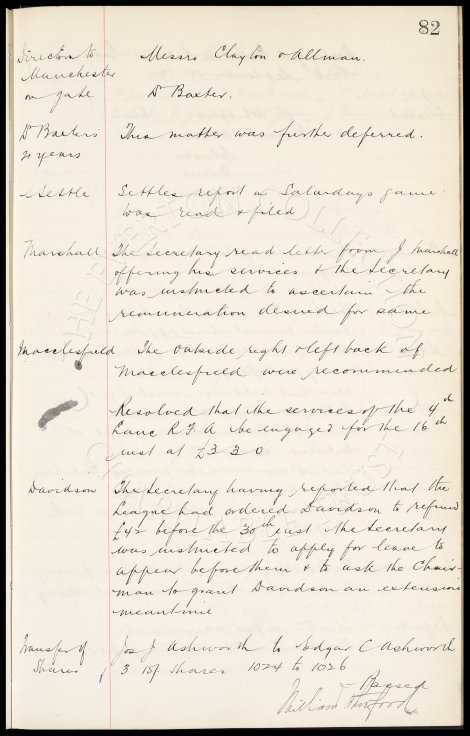 82
Directors to Messrs Clayton & Allman.
Manchester
on gate Dr Baxter.
Dr Baxters This matter was further deferred.
21 years
Settle Settles report on Saturdays game
was read & filed
Marshall The Secretary read letter from J Marshall
offering his services & the Secretary
was instructed to ascertain the
remuneration desired for same
Macclesfield The outside right & left back of
Macclesfield were recommended
Resolved that the services of the 4th
Lanc R F A be engaged for the 16th
inst at £3 3 0
Davidson The Secretary having reported that the
League had ordered Davidson to refund
before the 30th inst the Secretary
was instructed to apply for leave to
appear before them & to ask the Chair-
man to grant Davidson an extension
meantime
Transfer of Jos J Ashworth to Edgar C Ashworth
Shares 3 1st Shares 1024 to 1026
Passed
William
THE EVERTON COLLECTION